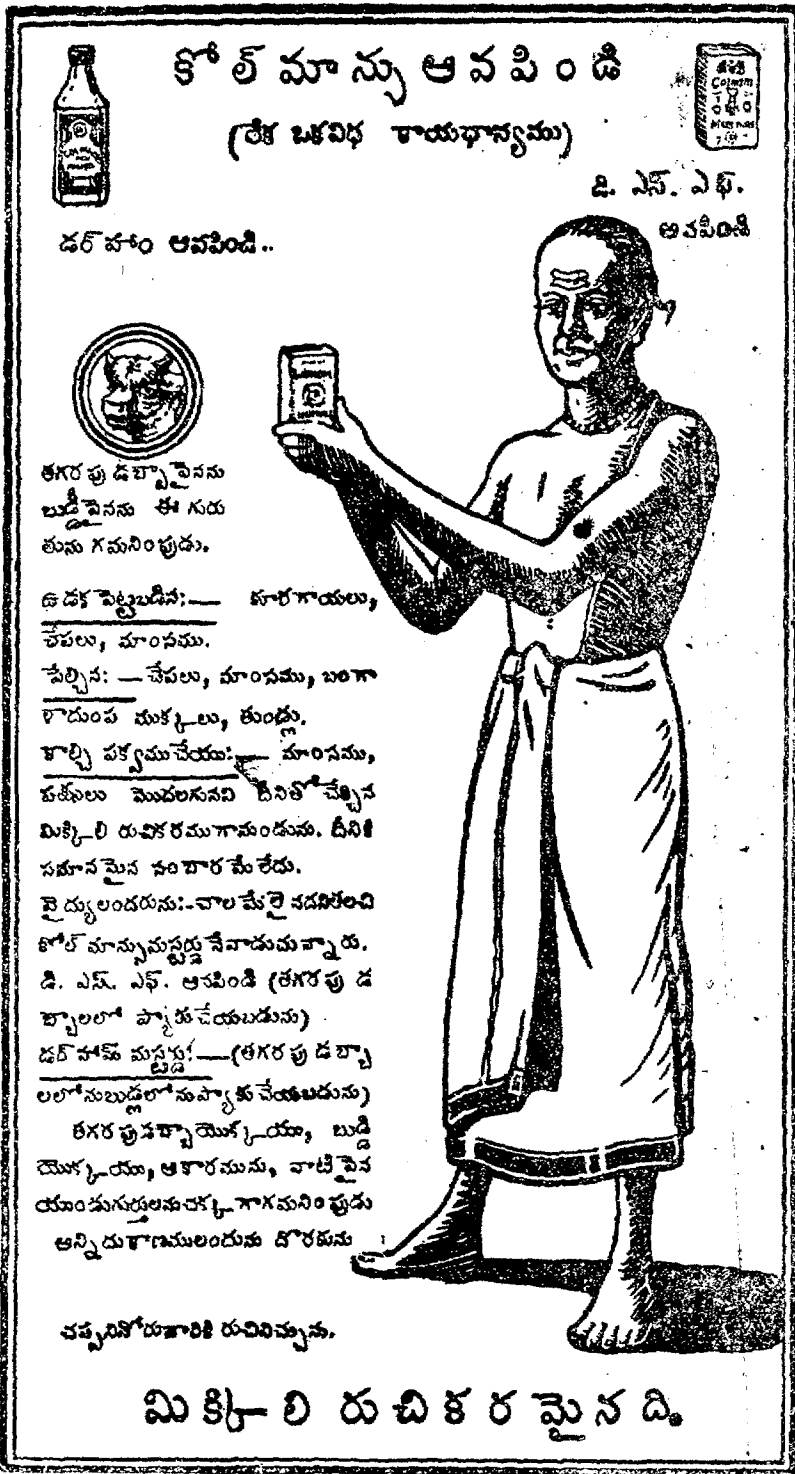 కోల్ మాన్సు ఆవపిండి
(లేక ఒకవిధ కాయధాన్యము)
డి. ఎస్. ఎఫ్.
ఆవపిండి
డర్ హాం ఆవపిండి..
తగరపు డబ్బాపైనను
బుడ్డీపైనను ఈ గురు
తును గమనింపుడు.
ఉడక పెట్టబడిన:— కూరగాయలు,
చేపలు, మాంసము.
పేల్చిన: — చేపలు, మాంసము, బంగా
ళాదుంప ముక్కలు, తుండ్లు.
కాల్చి పక్వముచేయు:— మాంసము,
మొదలగునవి దీనితో చేర్చిన
మిక్కిలి రుచికరముగానుండును. దీనికి
సమానమైన సంబారమే లేదు.
వైద్యులందరును:-చాల మేలైనదనితలచి
కోల్ మాన్సుమస్టర్డు నేవాడుచున్నారు.
డి. ఎస్. ఎఫ్. ఆవపిండి (తగరపు డ
బ్బాలలో ప్యాకుచేయబడును)
డర్ హామ్ మస్టర్డు:—(తగరపు డబ్బా
లలోనుబుడ్లలోనుప్యాకుచేయబడును)
తగరపుడబ్బాయొక్కయు, బుడ్డి
యొక్కయు, ఆకారమును, వాటిపైన
యుండుగుర్తులనుచక్కగాగమనింపుడు
అన్నిదుకాణములందును దొరకును
చప్పనినోరుగారికి రుచినిచ్చును.
మిక్కిలి రుచికరమైనది.